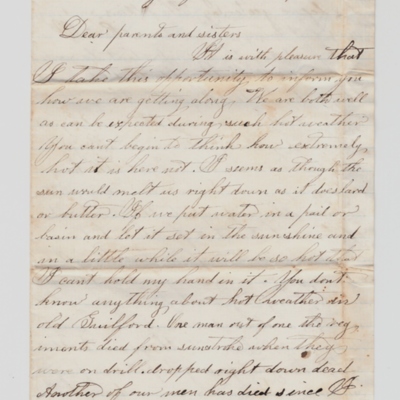 Dear parents and sisters
It is with pleasure that
I take this opportunity to inform you
how we are getting along. We are both well
as can be expected during such hot weather
You cant begin to think how extremely
hot it is here not. I seems as though the
sun would melt us right down as it does lard
or butter. If we put water in a pail or
basin and let it set in the sunshine and
in a little while it will be so hot that
I cant hold my hand in it. You dont
know anything about hot weather in
old Guilford. One man out of one the reg
iments died from sunstroke when they
were on drill. dropped right down dead
Another of our men has died since I